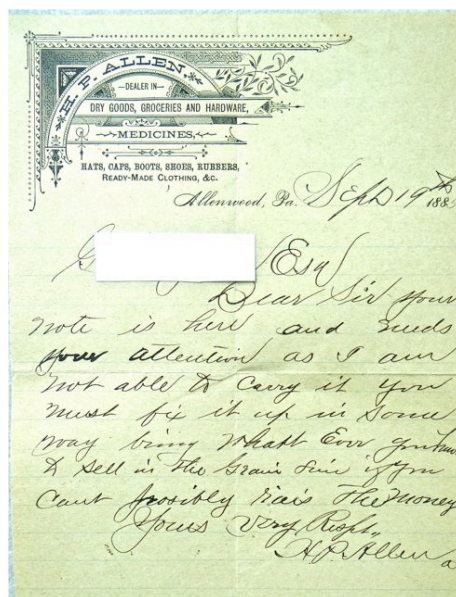 H. P. ALLEN,
—DEALER IN—
DRY GOODS, GROCERIES AND HARDWARE,
MEDICINES,
HATS, CAPS, BOOTS, SHOES, RUBBERS,
READY-MADE CLOTHING, &C.
Allenwood, Pa. Sept 19th 188
Esq
Dear Sir your
note is here and needs
your attention as I am
not able to carry it you
must fix it up in some
way bring whatt Ever you have
to sell in the Grain line if you
cant possibly rais the money
Yours very Respt,,
H.P. Allen